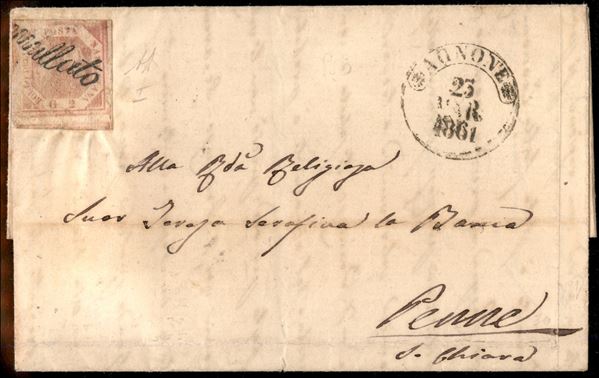 POSTA
annullato
G 2
AGNONE
23
MAR.
1861
Alla Rda Religiosa
Suor Teresa Serafina la Banca
Penne
S. Chiara